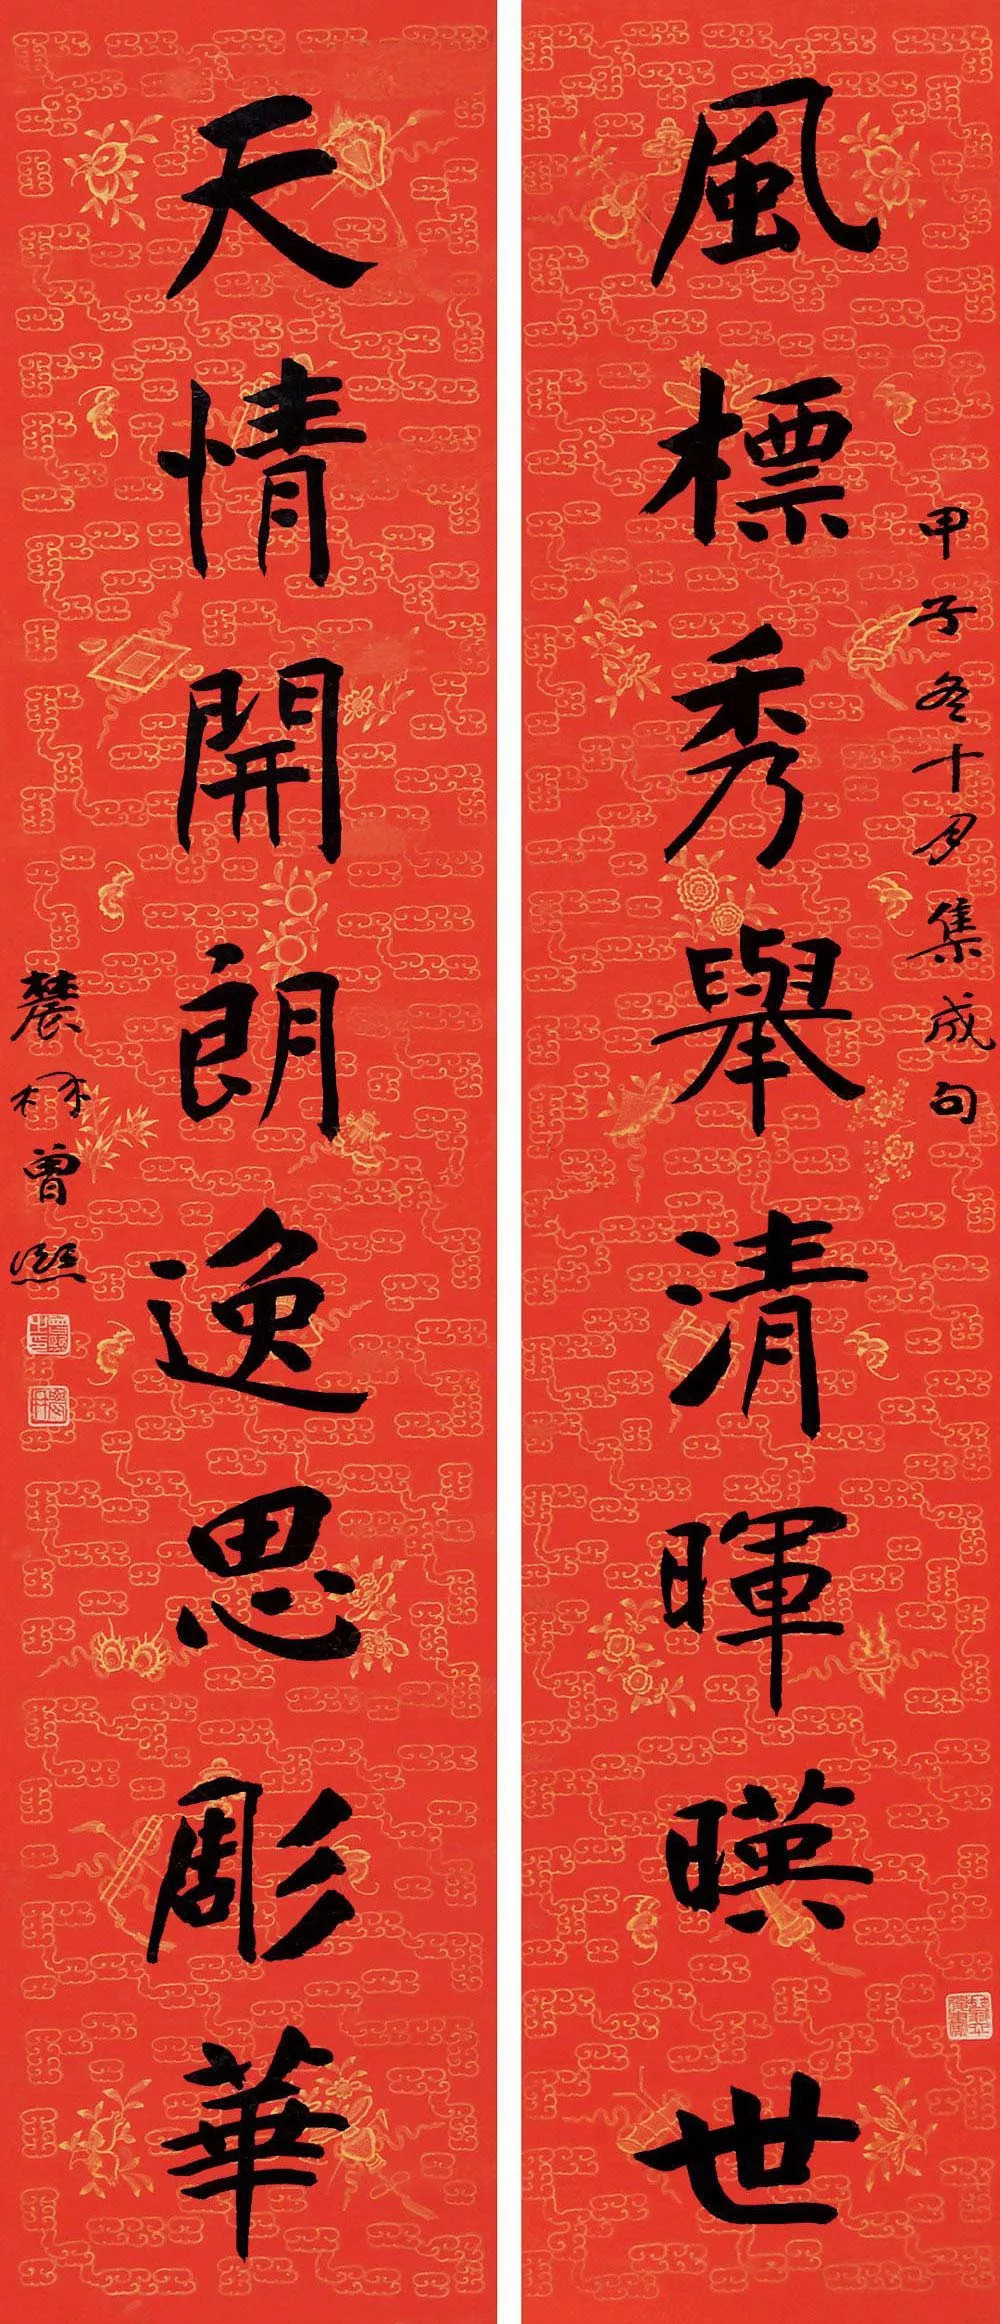 風標秀舉清暉暎世
甲子冬十月集成句
天情開朗逸思彫華
農髯曾熙